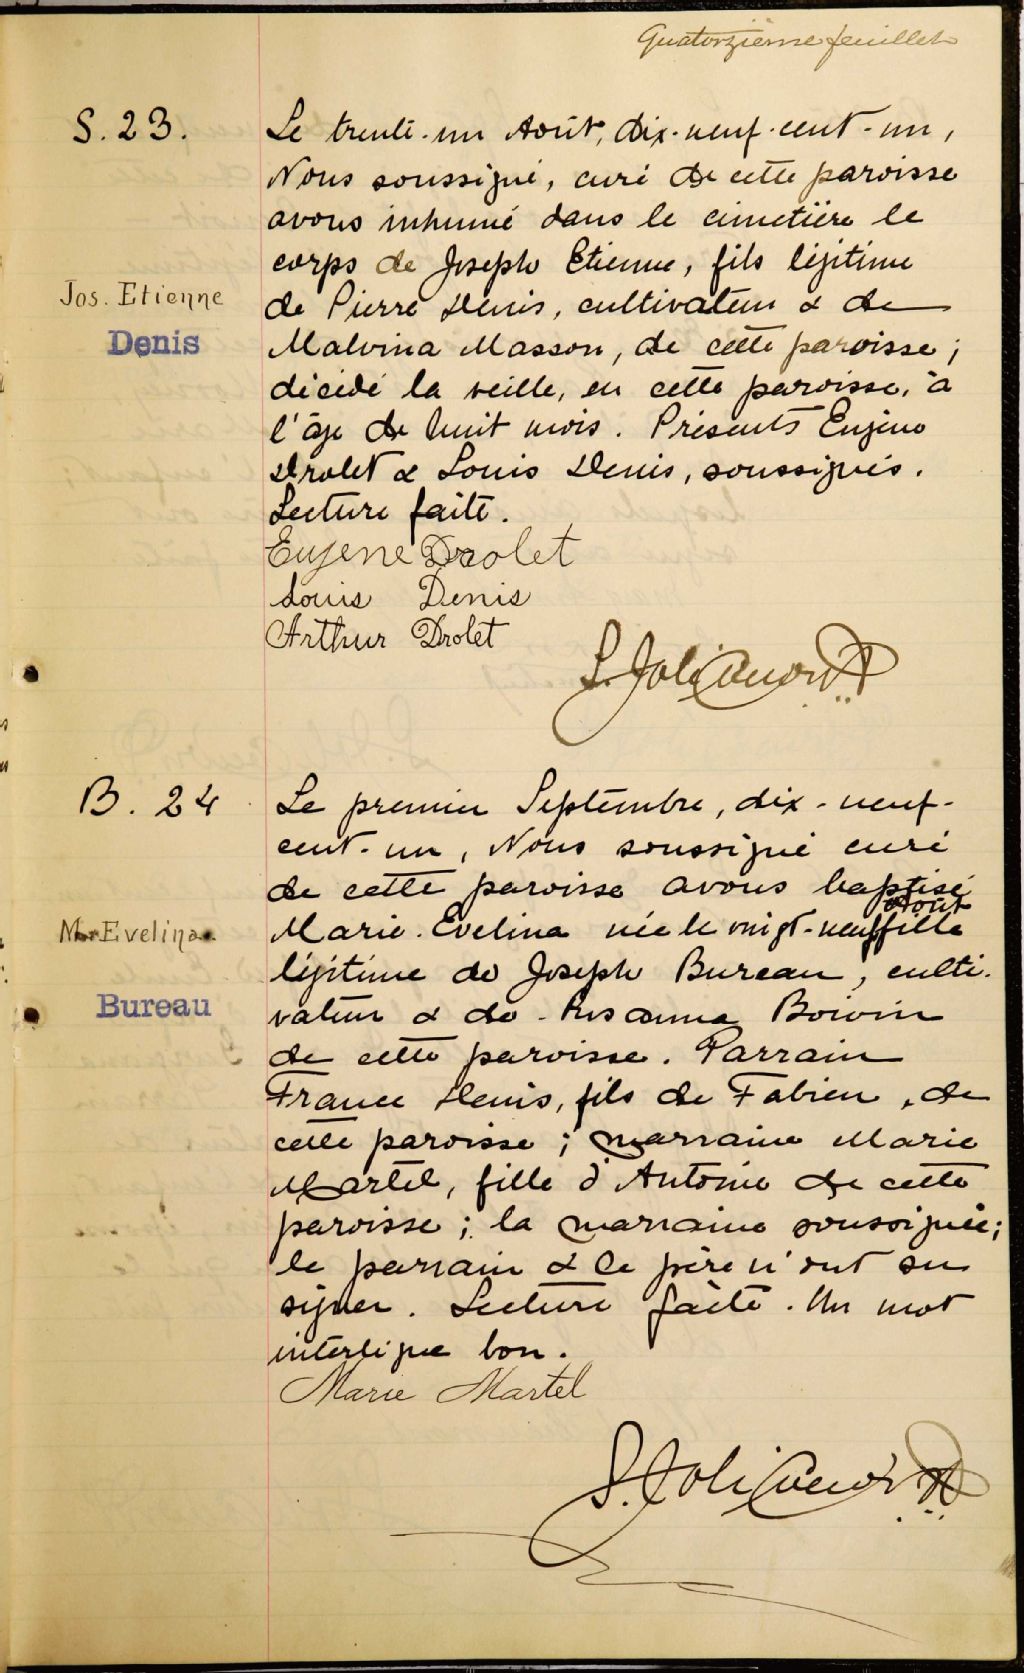 Quatorzième feuillet
S. 23.
Le trente-un Août, dix-neuf-cent-un,
Nous soussigné, curé de cette paroisse
avons inhumé dans le cimetière le
corps de Joseph Etienne, fils légitime
Jos. Etienne
de Pierre Denis, cultivateur & de
Denis
Malvina Masson, de cette paroisse;
décédé la veille, en cette paroisse, à
l'âge de huit mois. Présents Eugène
Drolet & Louis Denis, soussignés.
Lecture faite.
Eugene Drolet
Louis Denis
Arthur Drolet
S. Jolicoeur Ptre
B. 24
Le premier Septembre, dix-neuf-
cent-un, Nous soussigné curé
de cette paroisse avons baptisé
Août
M. Evelina
Marie. Evelina née le vingt-neuf fille
légitime de Joseph Bureau, culti-
Bureau
vateur & de Rosanna Boivin
de cette paroisse. Parrain
France Denis, fils de Fabien, de
cette paroisse; marraine Marie
Martel, fille d'Antoine de cette
paroisse; la marraine soussignée;
le parrain & le père n'ont su
signer. Lecture faite. Un mot
interligne bon.
Marie Martel
S. Jolicoeur Ptre